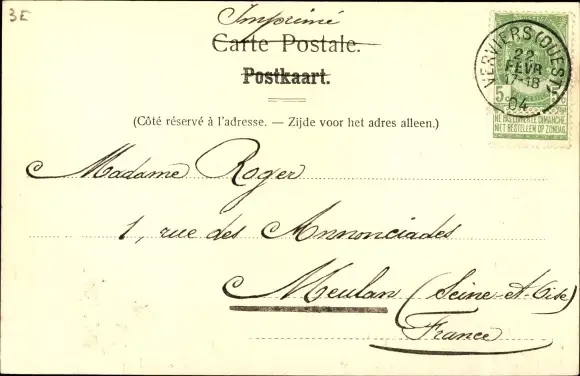 3E
Imprimé
Carte Postale.
Postkaart.
(Côté réservé à l'adresse. — Zijde voor het adres alleen.)
VERVIERS (OUEST)
22
FEVR
17-18
04
5 c
NE PAS LIVRER LE DIMANCHE
NIET BESTELLEN OP ZONDAG
Madame Roger
1, rue des Annonciades
Meulan (Seine-et-Oise)
France